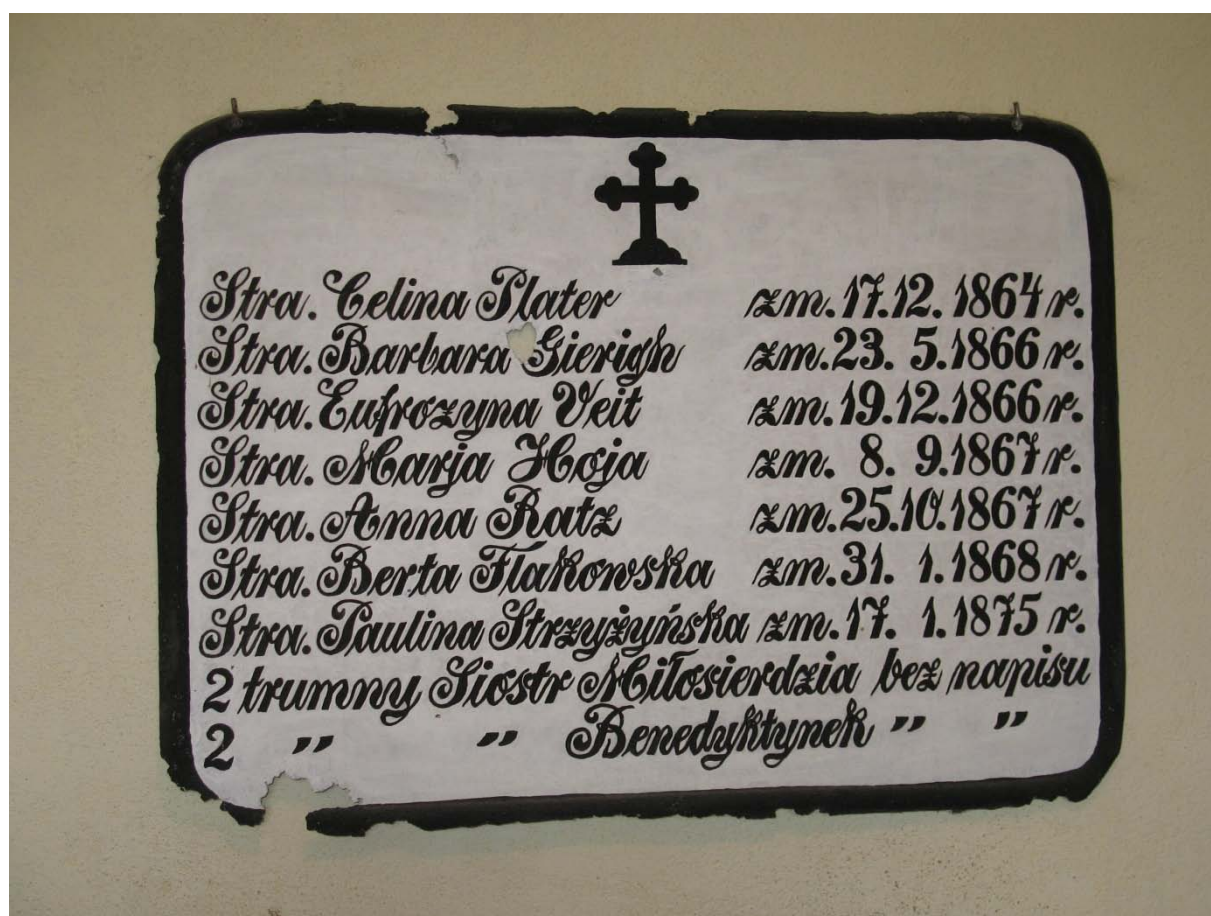 Stra. Celina Plater zm. 17. 12. 1864 r.
Stra. Barbara Gierigh zm. 23. 5. 1866 r.
Stra. Eufrozyna Veit zm. 19. 12. 1866 r.
Stra. Marja Hoja zm. 8. 9. 1867 r.
Stra. Anna Ratz zm. 25. 10. 1867 r.
Stra. Berta Flakowska zm. 31. 1. 1868 r.
Stra. Paulina Strzyżyńska zm. 17. 1. 1875 r.
2 trumny Siostr Miłosierdzia bez napisu
2 " " Benedyktynek " "